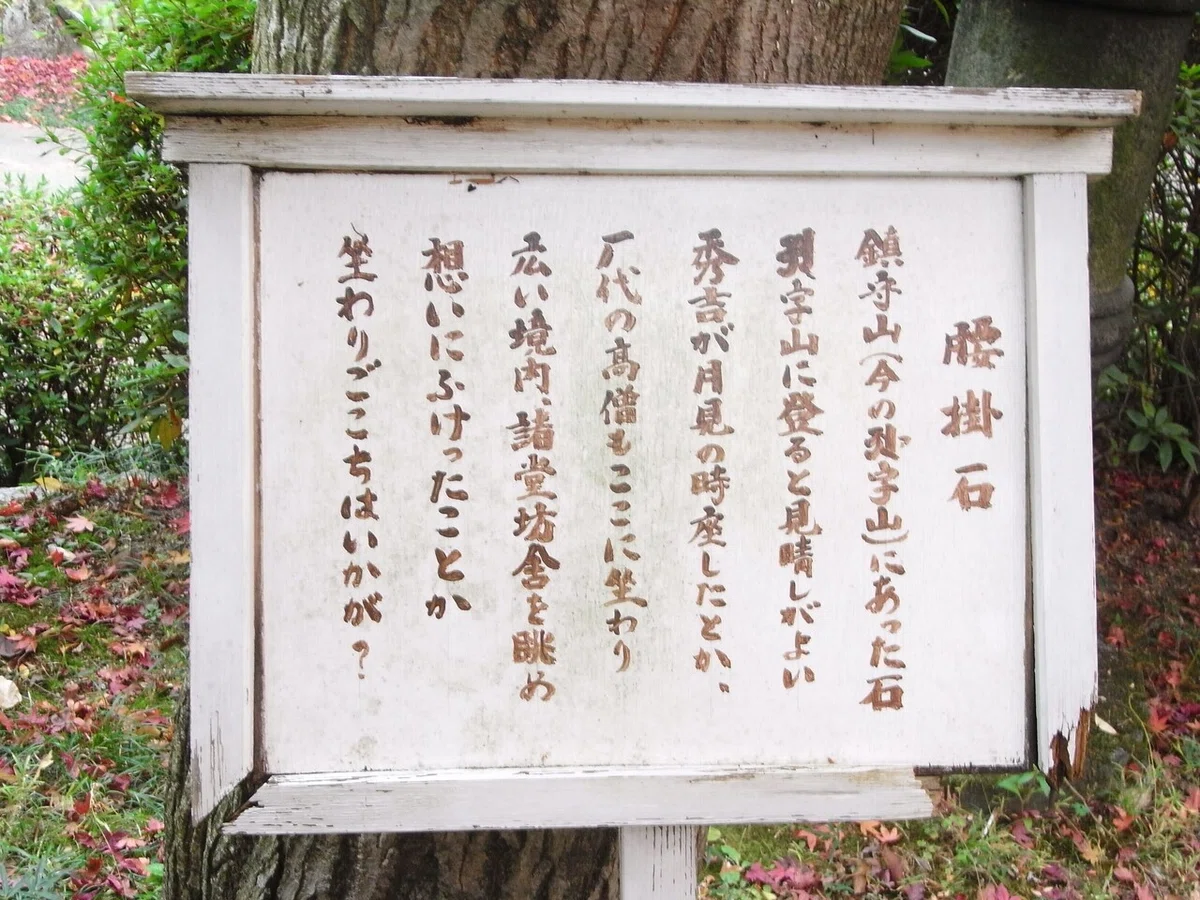 腰掛石
鎮守山(今の字山)にあった石
字山に登ると見晴しがよい
秀吉が月見の時座したとか、、
厂代の高僧もここに坐わり
広い境内、諸堂坊舎を眺め
想いにふけったことか
坐わりごこちはいかが?